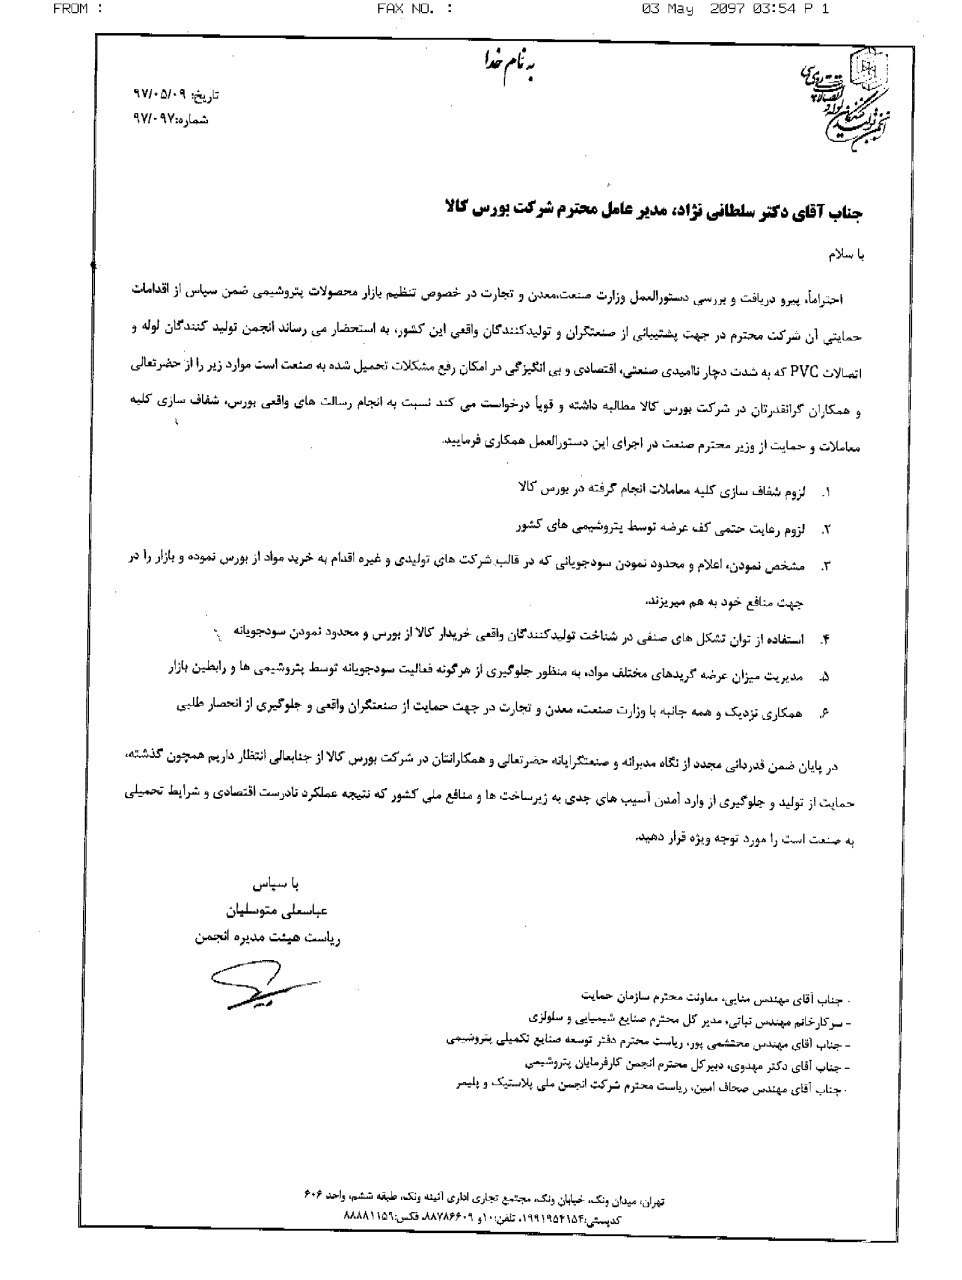 FROM : FAX NO. : 03 May 2097 03:54 P 1
به نام خدا
انجمن تولید کنندگان لوله و اتصالات پی وی سی
تاریخ: ۹۷/۰۵/۰۹
شماره:۹۷/۰۹۷
جناب آقای دکتر سلطانی نژاد، مدیر عامل محترم شرکت بورس کالا
با سلام
احتراماً، پیرو دریافت و بررسی دستورالعمل وزارت صنعت،معدن و تجارت در خصوص تنظیم بازار محصولات پتروشیمی ضمن سپاس از اقدامات
حمایتی آن شرکت محترم در جهت پشتیبانی از صنعتگران و تولیدکنندگان واقعی این کشور، به استحضار می رساند انجمن تولید کنندگان لوله و
اتصالات PVC که به شدت دچار ناامیدی صنعتی، اقتصادی و بی انگیزگی در امکان رفع مشکلات تحمیل شده به صنعت است موارد زیر را از حضرتعالی
و همکاران گرانقدرتان در شرکت بورس کالا مطالبه داشته و قویاً درخواست می کند نسبت به انجام رسالت های واقعی بورس، شفاف سازی کلیه
معاملات و حمایت از وزیر محترم صنعت در اجرای این دستورالعمل همکاری فرمایید.
۱. لزوم شفاف سازی کلیه معاملات انجام گرفته در بورس کالا
۲. لزوم رعایت حتمی کف عرضه توسط پتروشیمی های کشور
۳. مشخص نمودن، اعلام و محدود نمودن سودجویانی که در قالب شرکت های تولیدی و غیره اقدام به خرید مواد از بورس نموده و بازار را در
جهت منافع خود به هم میریزند.
۴. استفاده از توان تشکل های صنفی در شناخت تولیدکنندگان واقعی خریدار کالا از بورس و محدود نمودن سودجویانه
۵. مدیریت میزان عرضه گریدهای مختلف مواد، به منظور جلوگیری از هرگونه فعالیت سودجویانه توسط پتروشیمی ها و رابطین بازار
۶. همکاری نزدیک و همه جانبه با وزارت صنعت، معدن و تجارت در جهت حمایت از صنعتگران واقعی و جلوگیری از انحصار طلبی
در پایان ضمن قدردانی مجدد از نگاه مدبرانه و صنعتگرایانه حضرتعالی و همکارانتان در شرکت بورس کالا از جنابعالی انتظار داریم همچون گذشته،
حمایت از تولید و جلوگیری از وارد آمدن آسیب های جدی به زیرساخت ها و منافع ملی کشور که نتیجه عملکرد نادرست اقتصادی و شرایط تحمیلی
به صنعت است را مورد توجه ویژه قرار دهید.
با سپاس
عباسعلی متوسلیان
ریاست هیئت مدیره انجمن
- جناب آقای مهندس منایی، معاونت محترم سازمان حمایت
- سرکارخانم مهندس نباتی، مدیر کل محترم صنایع شیمیایی و سلولزی
- جناب آقای مهندس محتشمی پور، ریاست محترم دفتر توسعه صنایع تکمیلی پتروشیمی
- جناب آقای دکتر مهدوی، دبیرکل محترم انجمن کارفرمایان پتروشیمی
- جناب آقای مهندس صحاف امین، ریاست محترم شرکت انجمن ملی پلاستیک و پلیمر
تهران، میدان ونک، خیابان ونک، مجتمع تجاری اداری آئینه ونک، طبقه ششم، واحد ۶۰۶
کدپستی:۱۹۹۱۹۵۴۱۵۴، تلفن:۱۰و ۸۸۷۸۶۶۰۹، فکس:۸۸۸۸۱۱۵۹